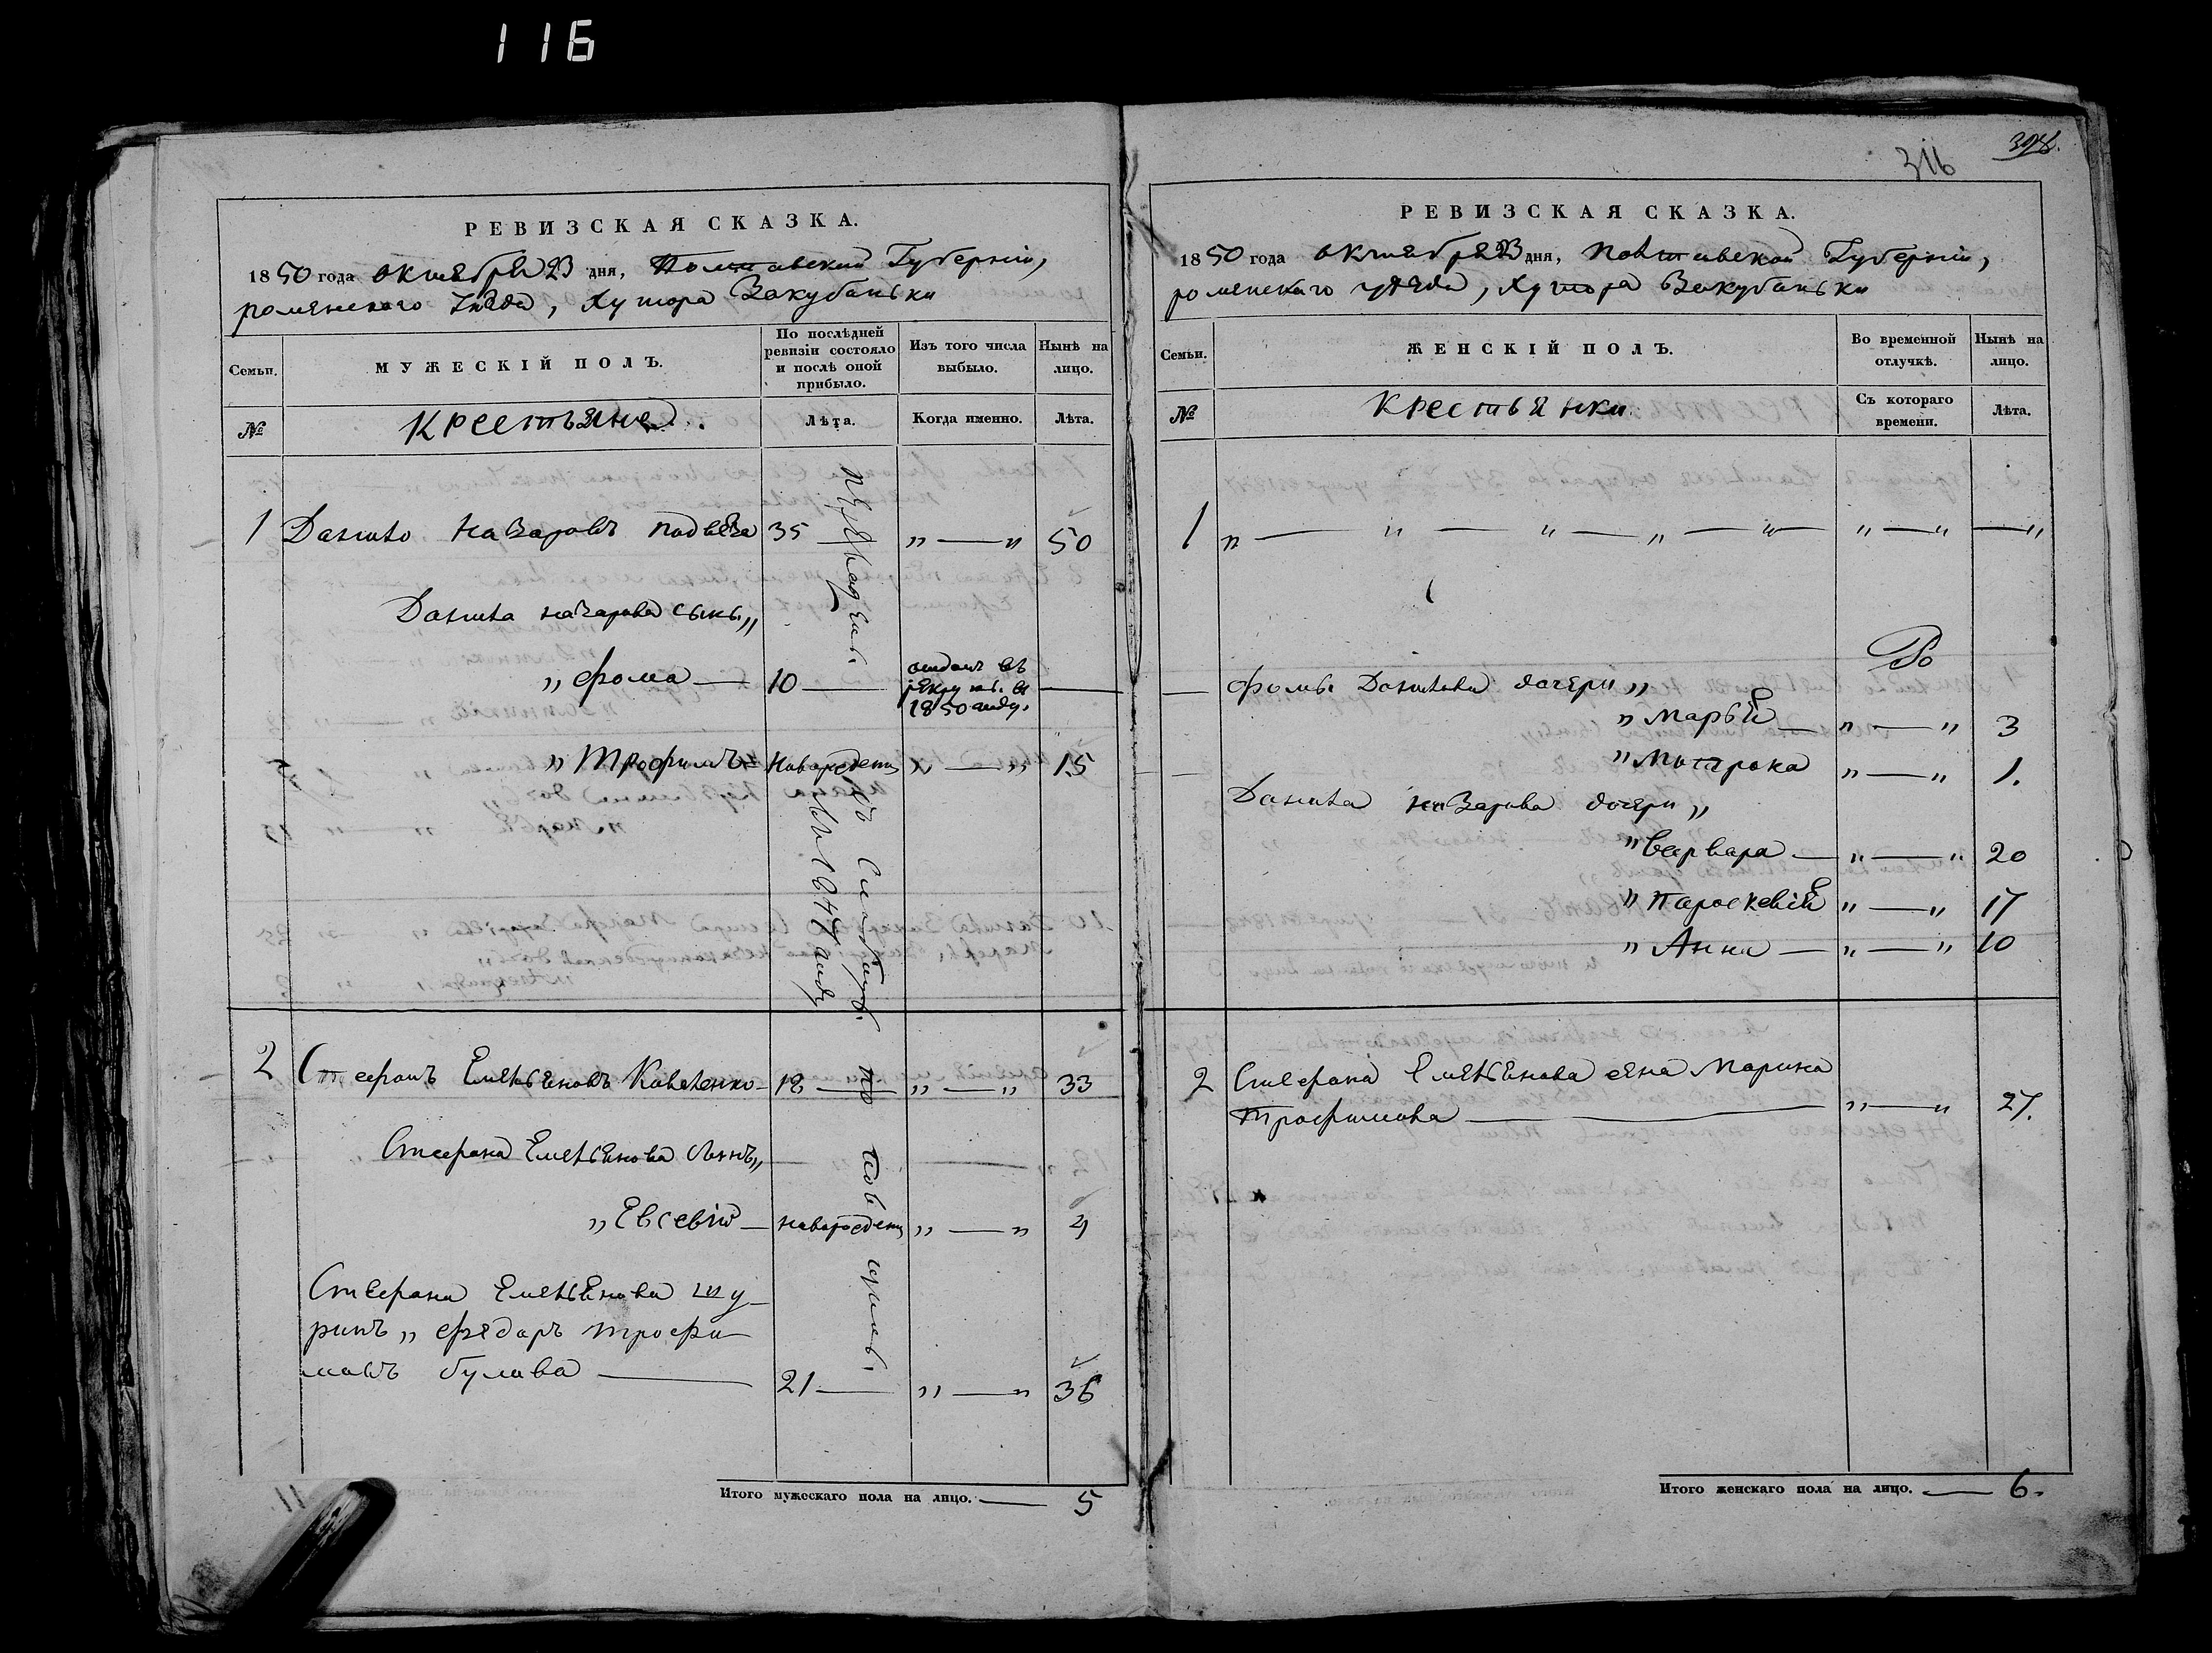 116
РЕВИЗСКАЯ СКАЗКА.
1850 года октября 23 дня, Полтавской Губернии,
роменского уезда, хутора Закубаньки
Семьи.
МУЖЕСКІЙ ПОЛЪ.
По послѣдней ревизіи состояло и послѣ оной прибыло.
Изъ того числа выбыло.
Нынѣ на лицо.
№
Крестьяне.
Лѣта.
Когда именно.
Лѣта.
1 Данило Назаровъ 35 " — " 50
Данила назарова сыны "
" Фома — 10 — отданъ въ рекруты въ 1850 году. —
" Трофимъ новорожденъ " — " 15
въ 1847 году
2 Стефанъ Емельяновъ Коваленко 18 — " — " 33
Стефана Емельянова сынъ "
" Евсевій — новорожденъ " — " 4
Стефана Емельянова шу-
ринъ " Федоръ трофи-
мовъ булава — 21 — " — " 36
Итого мужескаго пола на лицо. — 5
316
РЕВИЗСКАЯ СКАЗКА.
1850 года октября 23 дня, Полтавской Губерніи,
роменскаго уезда, хутора Закубаньки
Семьи.
ЖЕНСКІЙ ПОЛЪ.
Во временной отлучкѣ.
Нынѣ на лицо.
№
Крестьянки
Съ котораго времени.
Лѣта.
1 " — " — " — " — " " — " — "
— Фомы Данилова дочери "
" Марья — " — " 3
" Мотрона " — " 1.
Данила Назарова дочери "
" Варвара — " — " 20
" Параскевія " — " 17
" Анна — " — " 10
2 Стефана Емельянова жена Марина
трофимова — " — " 27.
Итого женскаго пола на лицо. — 6.